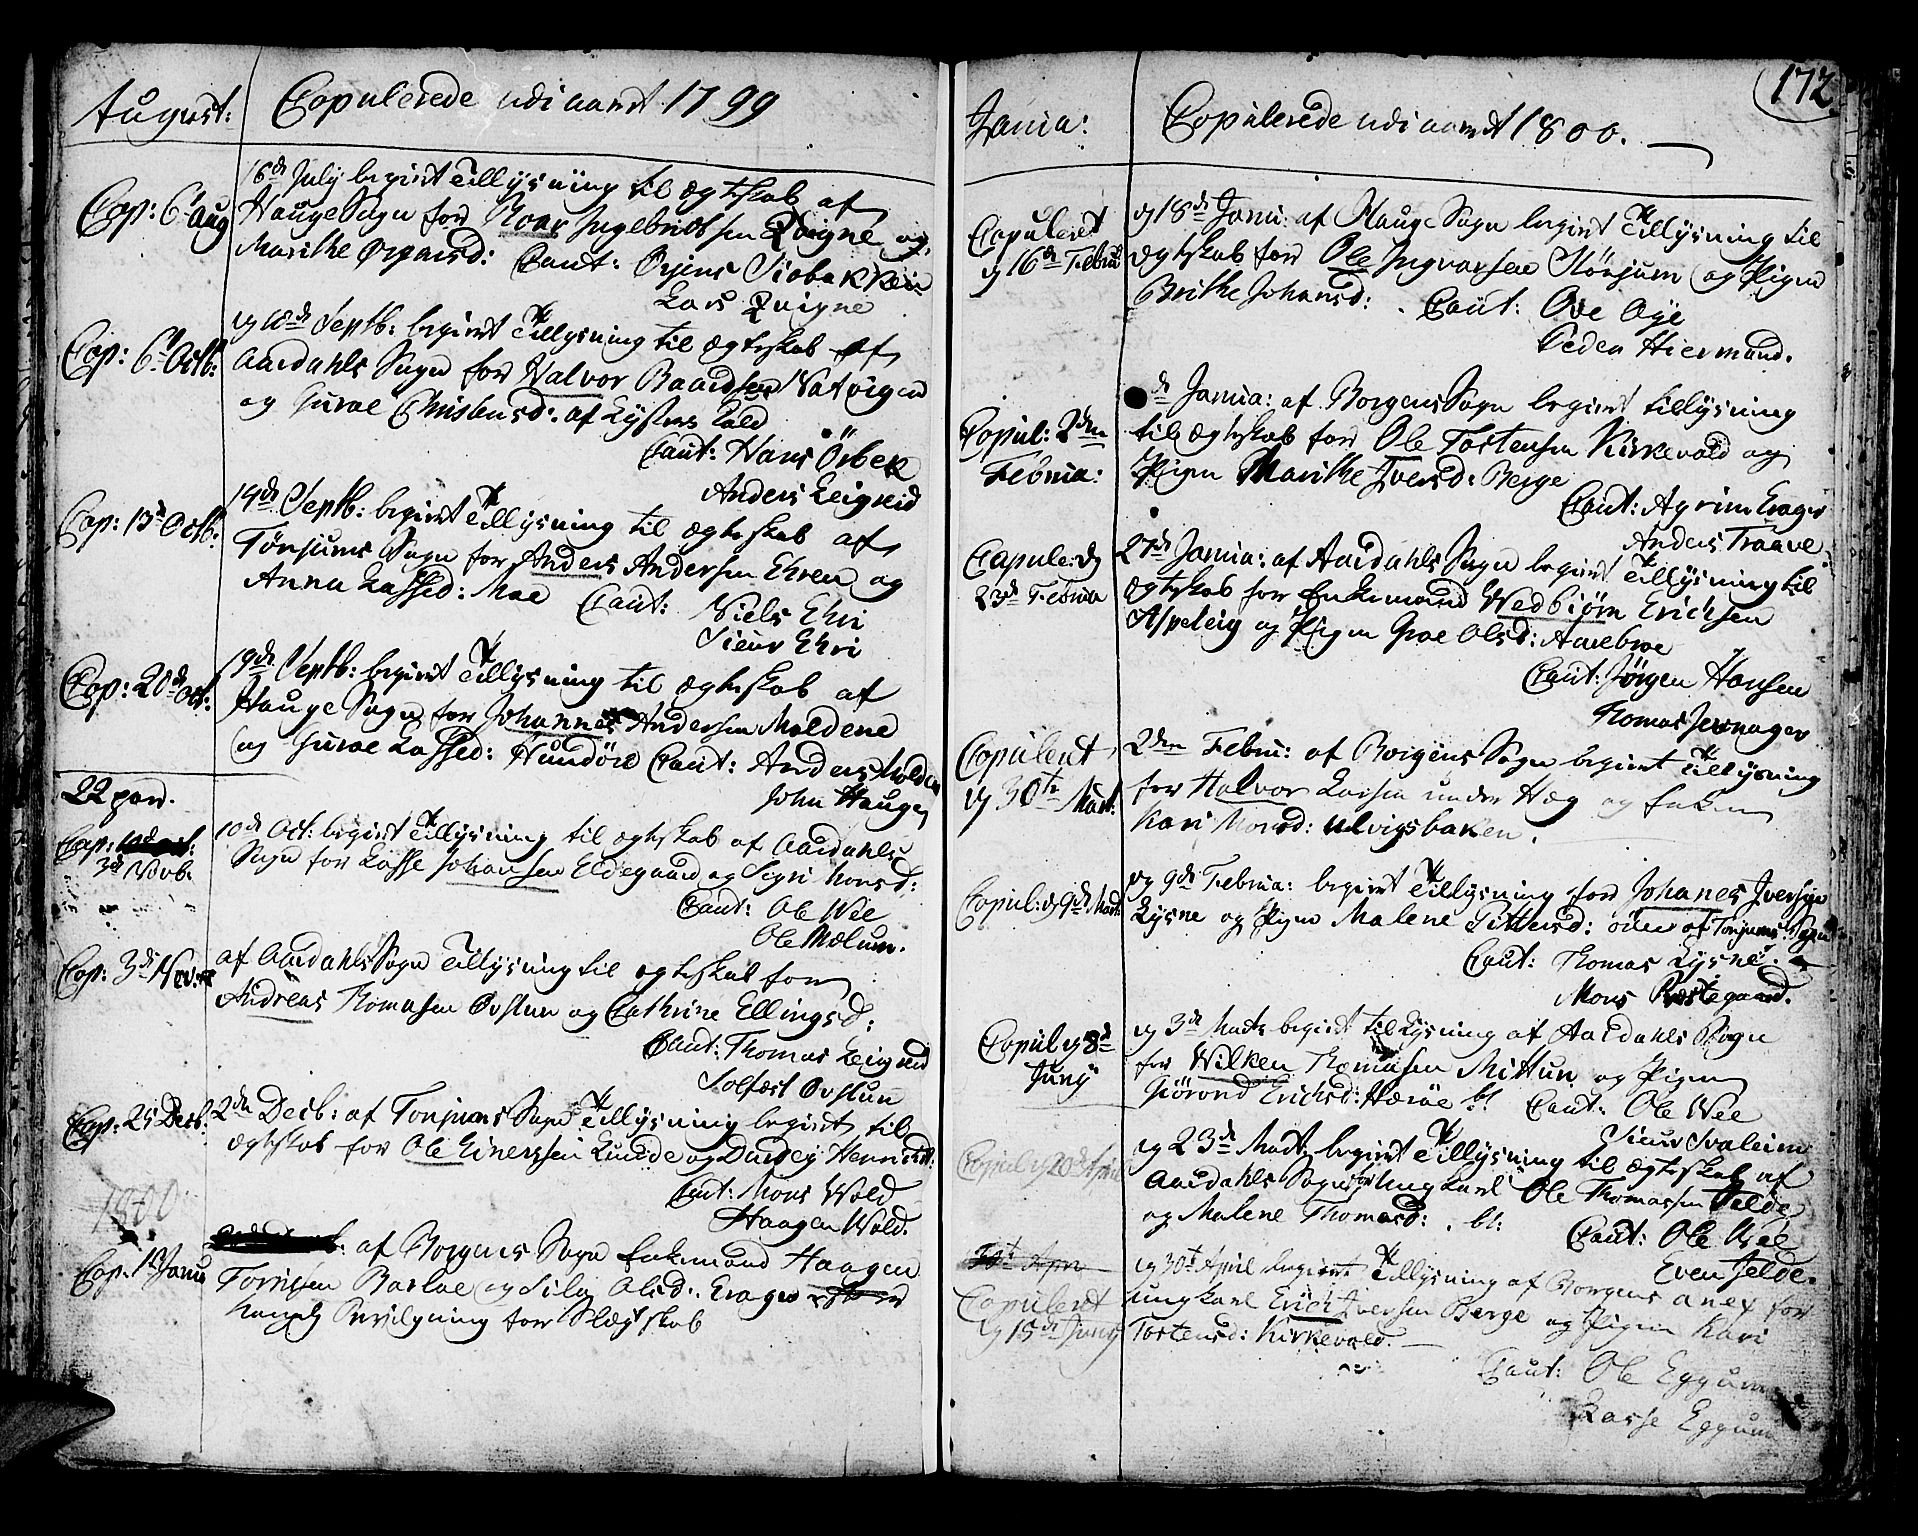 August: Copulerede udi aaret 1799
Cop: 6 Aug
16de July begiert Tillysning til Ægteskab af
Hauge Sogn for Roar Ingebretsen Qvigne og
Marithe Orjansd: Caut: Orjens
Lars Qvigne
Cop: 6t Octb:
Septb: begiert Tillysning til Ægteskab af
Aardahls Sogn for Halvor Baardsen Natvigen
og Guroe Christensd: af Lysters
Caut: Hans Örbek
Anders Leigreid
Cop: 13d Octb:
14de Septb: begiert Tillysning til Ægteskab af
Tönjums Sogn for Anders Andersen Ehren og
Anna Lassed: Moe Caut: Niels Ehri
Sieur Ehri
Cop: 20de Oct:
19de Septb: begiert Tillysning til Ægteskab af
Hauge Sogn for Johannes Andersen Moldene
og Guroe Lassed: Hundöre Caut: Anders Molden
John Hauge
22 par.
Cop:
3d Novb.
10de Oct: begiert Tillysning til Ægteskab af Aardahls
Sogn for Lasse Johansen Eldegaard og Sigri Monsd:
Caut: Ole Wee
Ole Mælum.
Cop: 3de Nov:
af Aardahls Sogn Tillysning til Ægteskab for
Andreas Thomasen Ovstun og Cathrine Ellingsd:
Caut: Thomas Leigreid
Solfæst Ovstun
Cop: 25 Decb:
2den Decb: af Tonjums Sogn Tillysning begiert til
Ægteskab for Ole Einersen Lunde og Durdej Henriksd:
Caut: Mons Wold
Haagen Wold.
1800
Cop: 1t Janu
af Borgens Sogn Enkemand Haagen
Tornisen Borloe og Silij Olsd: Erager
kongelig Bevilgning for Slægtskab
172
Janua: Copulerede udi aaret 1800.
Copuleret
16de Februa
18de Janu: af Hauge Sogn begiert Tillysning til
Ægteskab for Ole Ingvorsen Stönjum og Pigen
Brithe Johansd: Caut: Ove Oye
Peder Hiermand.
Copul: 2den
Februa:
de Janua: af Borgens Sogn begiert tillysning
til Ægteskab for Ole Tostensen Kirkevold og
Pigen Marithe Iversd: Berge
Caut: Agrim Erager
Anders Traave
Copule: d
23de Februa
27de Janua: af Aardahls Sogn begiert Tillysning til
Ægteskab for Enkemand Wedbiörn Erichsen
Aspeleig og Pigen Groe Olsd: Aarebroe
Caut: Jörgen Hansen
Thomas Jernager
Copuleret
30te Mart:
2den Febru: af Borgens Sogn begiert Tillysning
for Halvor Larsen under Hæg og Enken
Kari Monsd: Ulvigsbaken.
Copul: d 9de Mart:
9de Februa: begiert Tillysning for Johanes Iversen
Lysne og Pigen Malene Pittersd: af Tonjums Sogn
Caut: Thomas Lysne
Mons Prestegaard.
Copul 8d
Junij
3de Marts begiert til Lysning af Aardahls Sogn
for Wilken Thomasen Mittun og Pigen
Giörond Erichsd: Hæröe bl Caut: Ole Wee
Sieur Svaleim
Copul d 20de April
23de Mart: begiert Tillysning til Ægteskab af
Aardahls Sogn for Ungkarl Ole Thomassen Felde
og Malene Thomasd: bl: Caut: Ole Wee
Even Felde.
30t Apri
Copuleret
15de Junij
30t April begiert Tillysning af Borgens anex for
ungkarl Erich Iversen Berge og Pigen Kari
Tostensd: Kirkevold.
Caut: Ole Eggum
Lasse Eggum